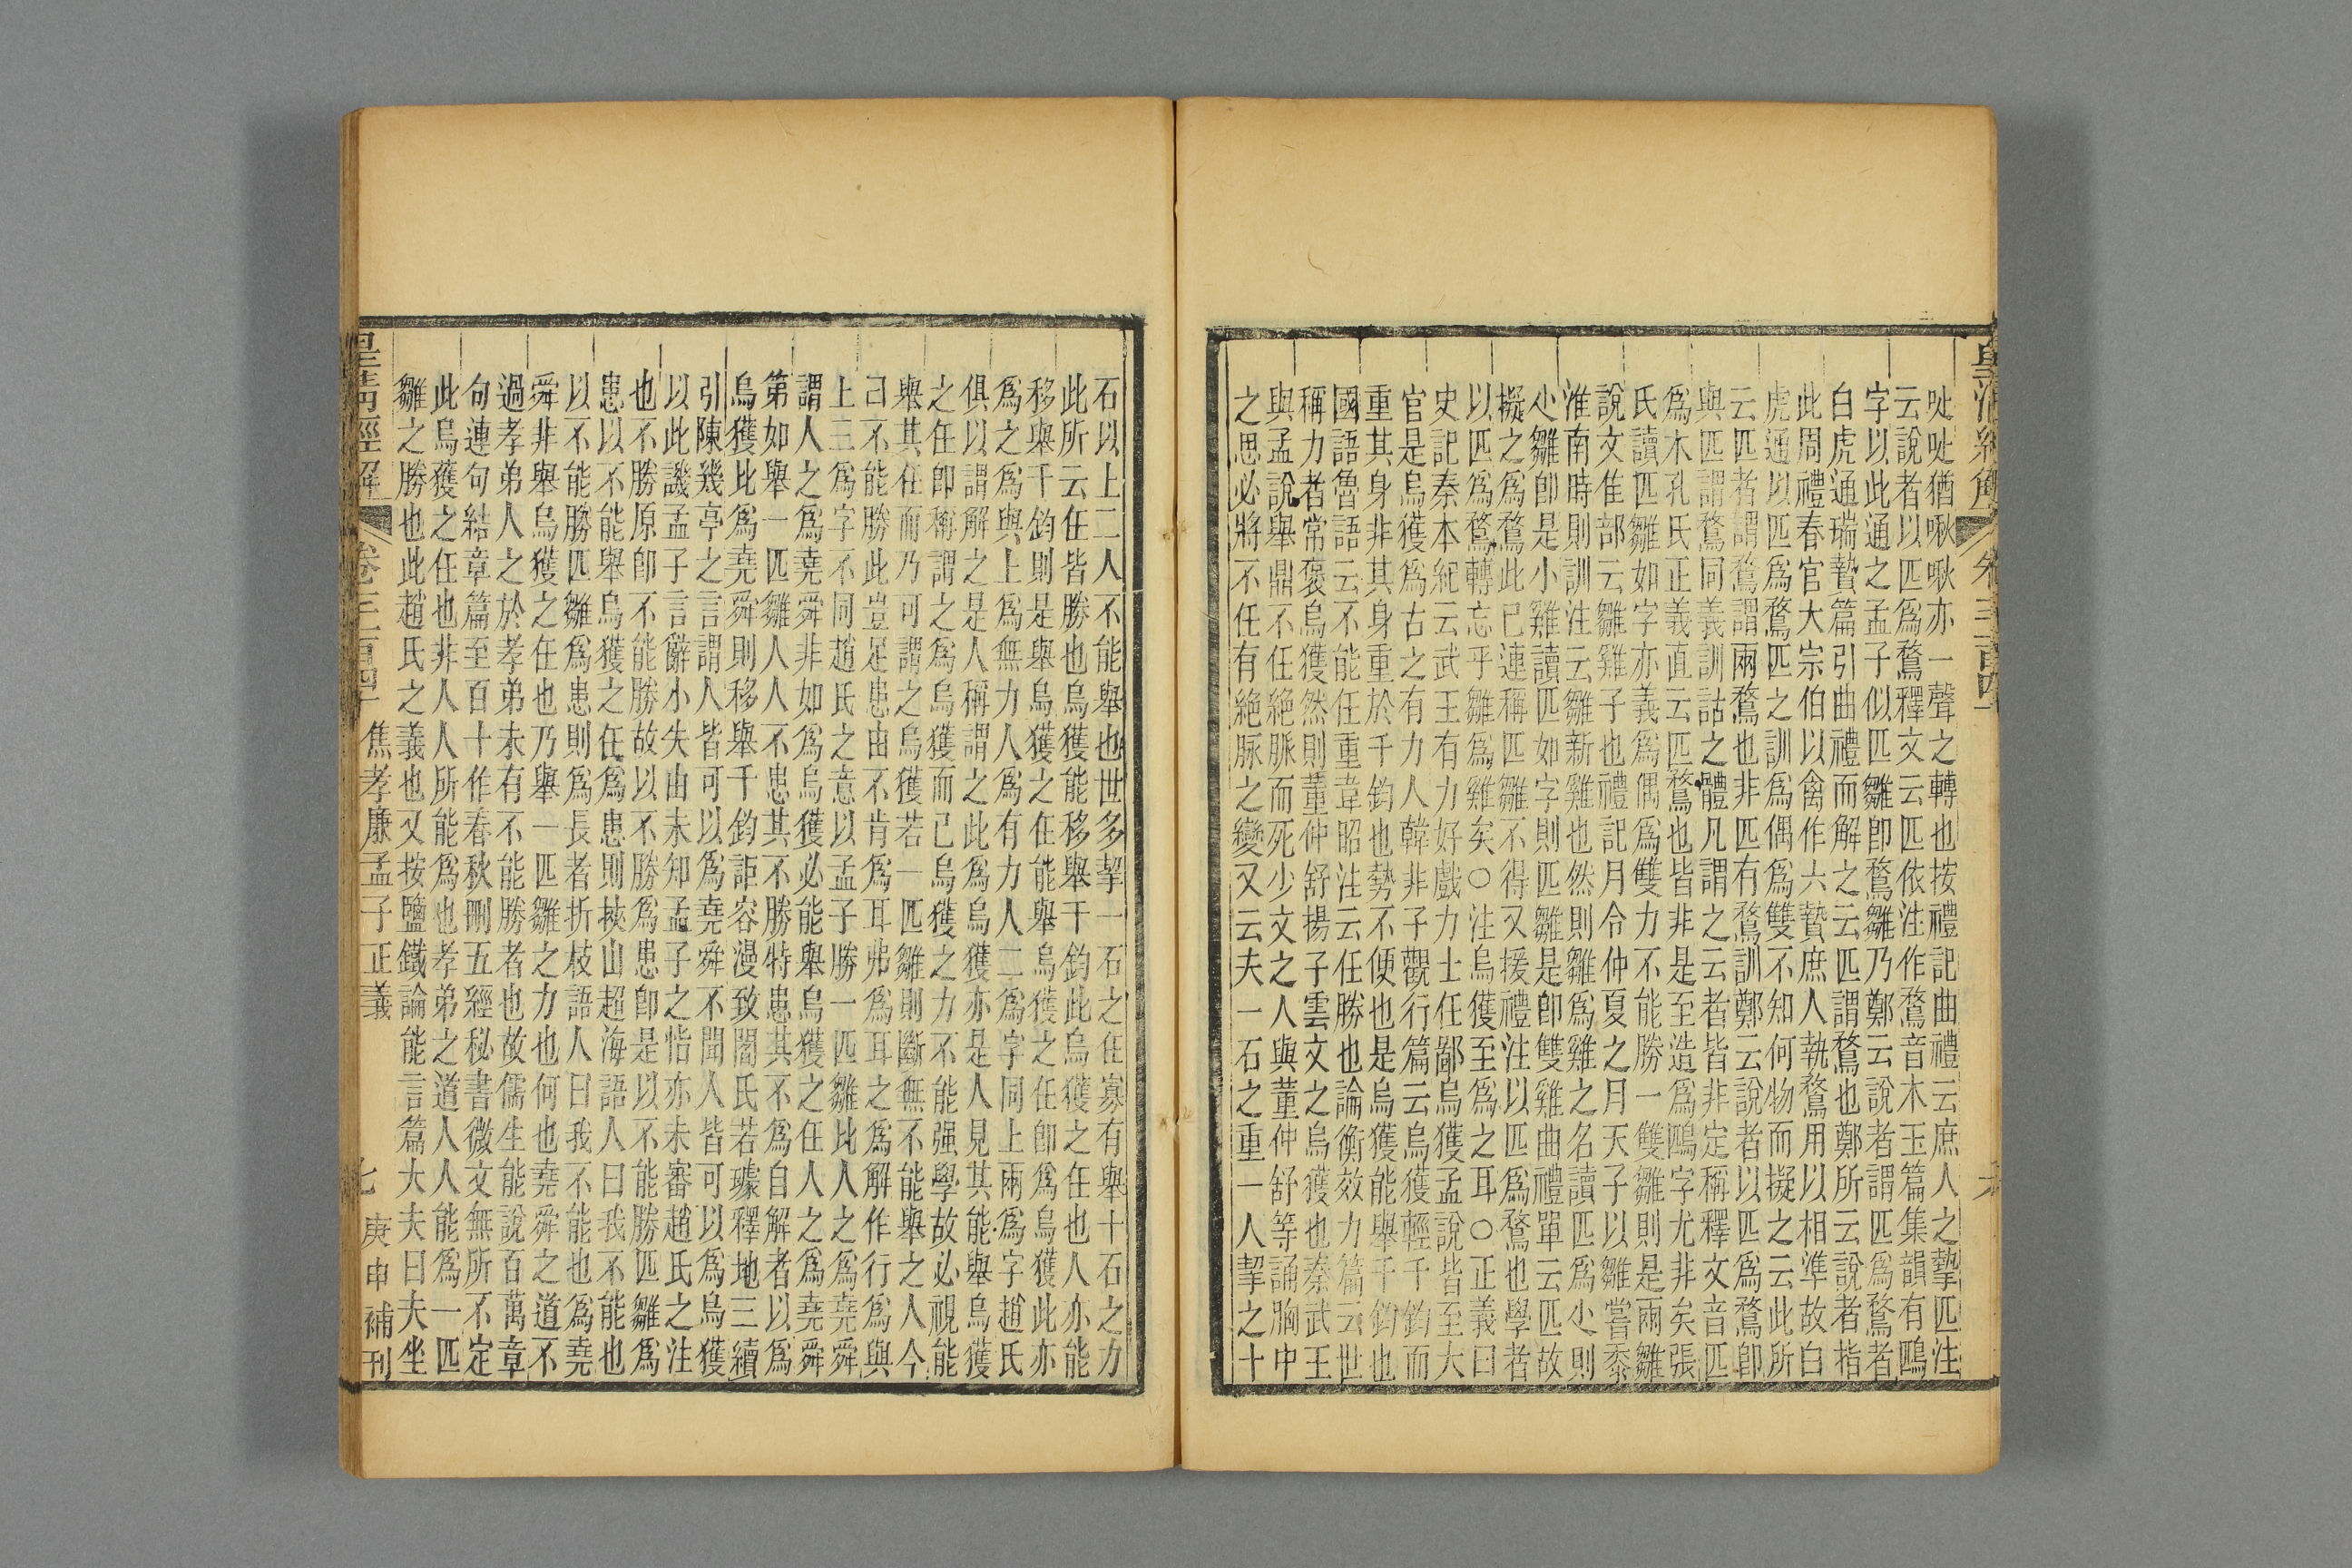 皇清經解
卷三百四十
吡吡猶啾啾亦一聲之轉也按禮記曲禮云庶人之摯匹注
云說者以匹爲鶩釋文云匹依注作鶩音木玉篇集韻有鴄
字以此通之孟子似匹雛卽鶩雛乃鄭云說者謂匹爲鶩者
白虎通瑞贄篇引曲禮而解之云匹謂鶩也鄭所云說者指
此周禮春官大宗伯以禽作六贄庶人執鶩用以相準故白
虎通以匹爲鶩匹之訓爲偶爲雙不知何物而擬之云此所
云匹者謂鶩謂兩鶩也非匹有鶩訓鄭云說者以匹爲鶩卽
與匹謂鶩同義訓詁之體凡謂之云者皆非定稱釋文音匹
爲木孔氏正義直云匹鶩也皆非是至造爲鴄字尤非矣張
氏讀匹雛如字亦義爲偶爲雙力不能勝一雙雛則是兩雛
說文隹部云雛雞子也禮記月令仲夏之月天子以雛嘗黍
淮南時則訓注云雛新雞也然則雛爲雞之名讀匹爲尐則
尐雛卽是小雞讀匹如字則匹雛是卽雙雞曲禮單云匹故
擬之爲鶩此已連稱匹雛不得又援禮注以匹爲鶩也學者
以匹爲鶩轉忘乎雛爲雞矣○注烏獲至爲之耳○正義曰
史記秦本紀云武王有力好戲力士任鄙烏獲孟說皆至大
官是烏獲爲古之有力人韓非子觀行篇云烏獲輕千鈞而
重其身非其身重於千鈞也勢不便也是烏獲能舉千鈞也
國語魯語云不能任重韋昭注云任勝也論衡效力篇云世
稱力者常褒烏獲然則董仲舒揚子雲文之烏獲也秦武王
與孟說舉鼎不任絕脈而死少文之人與董仲舒等誦胸中
之思必將不任有絕脉之變又云夫一石之重一人挈之十
石以上二人不能舉也世多挈一石之任寡有舉十石之力
此所云任皆勝也烏獲能移舉千鈞此烏獲之任也人亦能
移舉千鈞則是舉烏獲之任能舉烏獲之任卽爲烏獲此亦
爲之爲與上爲無力人爲有力人二爲字同上兩爲字趙氏
俱以謂解之是人稱謂之此爲烏獲亦是人見其能舉烏獲
之任卽稱謂之爲烏獲而已烏獲之力不能强學故必視能
舉其任而乃可謂之烏獲若一匹雛則斷無不能舉之人今
己不能勝此豈足患由不肯爲耳弗爲耳之爲解作行爲與
上三爲字不同趙氏之意以孟子勝一匹雛比人之爲堯舜
謂人之爲堯舜非如爲烏獲必能舉烏獲之任人之爲堯舜
第如舉一匹雛人人不患其不勝特患其不爲自解者以爲
烏獲比爲堯舜則移舉千鈞詎容漫致閻氏若璩釋地三續
引陳幾亭之言謂人皆可以爲堯舜不聞人皆可以爲烏獲
以此譏孟子言辭小失由未知孟子之恉亦未審趙氏之注
也不勝原卽不能勝故以不勝爲患卽是以不能勝匹雛爲
患以不能舉烏獲之任爲患則挾山超海語人曰我不能也
以不能勝匹雛爲患則爲長者折枝語人曰我不能也爲堯
舜非舉烏獲之任也乃舉一匹雛之力也何也堯舜之道不
過孝弟人之於孝弟未有不能勝者也故儒生能說百萬章
句連句結章篇至百十作春秋刪五經秘書微文無所不定
此烏獲之任也非人人所能爲也孝弟之道人人能爲一匹
雛之勝也此趙氏之義也又按鹽鐵論能言篇大夫曰夫坐
皇清經解 卷三百四十 焦孝廉孟子正義 七 庚申補刊